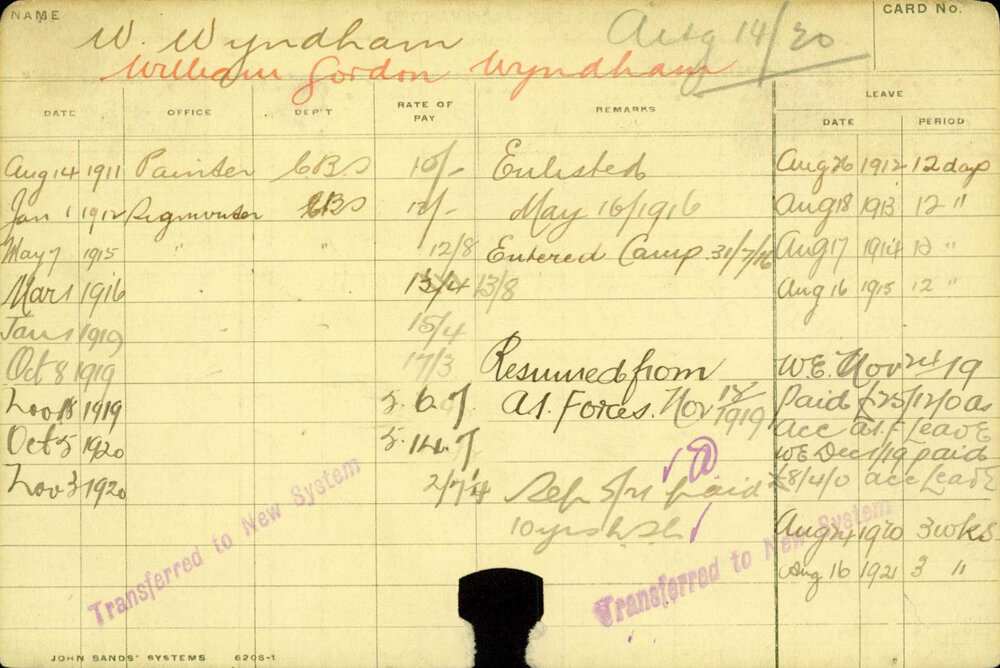 NAME
CARD No.
W. Wyndham
Aug 14/20
William Gordon Wyndham
DATE OFFICE DEP'T RATE OF PAY REMARKS LEAVE
DATE PERIOD
Aug 14 1911 Painter CBS 10/- Enlisted Aug 26 1912 12 days
Jan 1 1912 Signwriter CBS 11/- May 16/1916 Aug 18 1913 12 "
May 7 1915 " " 12/8 Entered Camp 31/7/16 Aug 17 1914 12 "
Mar 1 1916 13/4 13/8 Aug 16 1915 12 "
Jan 1 1919 15/4
Oct 8 1919 17/3 Resumed from W.E. Nov 24/19
Nov 18 1919 5.6.7 A.I. Forces. Nov 18/1919 Paid £25/12/0 as
acc A.I.F Leave
Oct 5 1920 5.14.7 WE Dec 1/19 paid
Nov 3 1920 2/7/4 Sep 5/21 paid £8/4/0 acc Leave
10yrs
Aug 24 1920 3 wks
Aug 16 1921 3 "
Transferred to New System
Transferred to New System
JOHN SANDS' SYSTEMS 6206-1